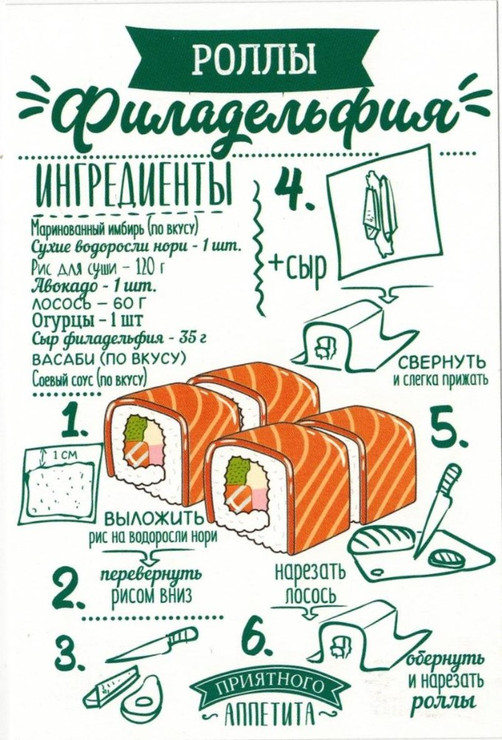 РОЛЛЫ
Филадельфия
ИНГРЕДИЕНТЫ
Маринованный имбирь (по вкусу)
Сухие водоросли нори - 1 шт.
Рис для суши - 120 г
Авокадо - 1 шт.
ЛОСОСЬ - 60 Г
Огурцы - 1 шт
Сыр филадельфия - 35 г
ВАСАБИ (ПО ВКУСУ)
Соевый соус (по вкусу)
1.
1 СМ
ВЫЛОЖИТЬ
рис на водоросли нори
2.
перевернуть
рисом вниз
3.
4.
+сыр
СВЕРНУТЬ
и слегка прижать
5.
нарезать
лосось
6.
обернуть
и нарезать
роллы
ПРИЯТНОГО
АППЕТИТА